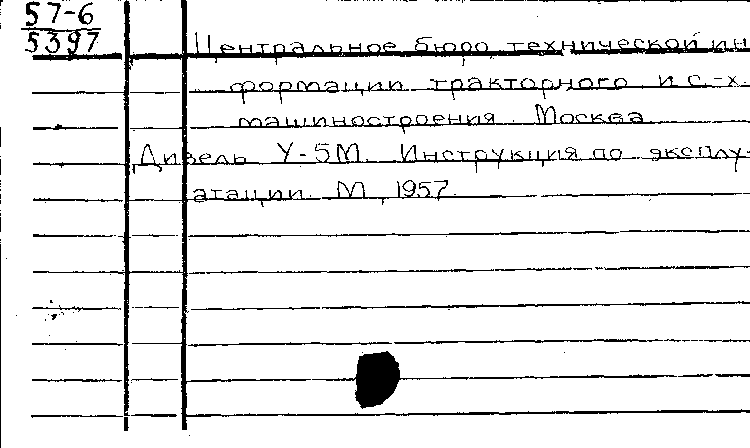 57-6
5397
Центральное бюро технической ин
формации тракторного и с.-х.
машиностроения. Москва
Дизель У-5М. Инструкция по эксплу-
атации. М., 1957.